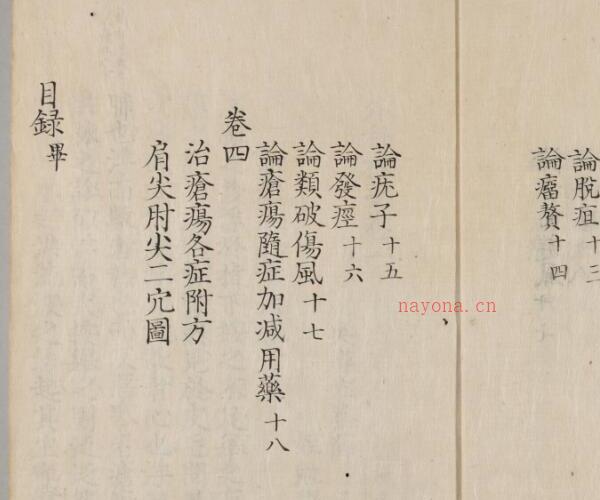 論脫疽十三
論瘤贅十四
論疣子十五
論發痙十六
論類破傷風十七
論瘡瘍隨症加减用藥十八
卷四
治瘡瘍各症附方
肩尖肘尖二穴圖
目録畢
nayona.cn